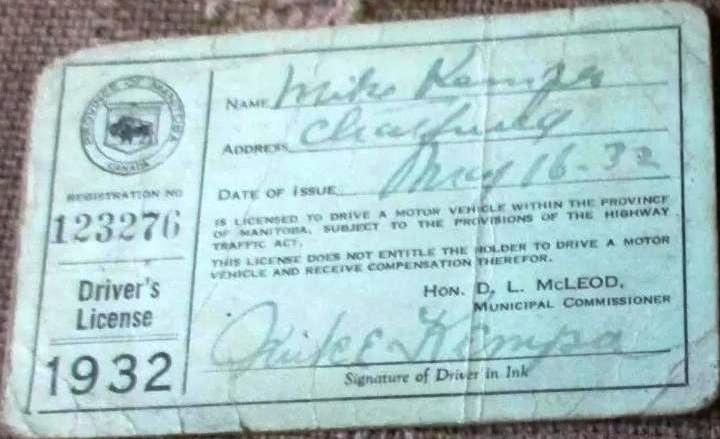 PROVINCE OF MANITOBA
CANADA
REGISTRATION NO
123276
Driver's
License
1932
NAME Mike Kempa
ADDRESS
DATE OF ISSUE May 16-32
IS LICENSED TO DRIVE A MOTOR VEHICLE WITHIN THE PROVINCE
OF MANITOBA, SUBJECT TO THE PROVISIONS OF THE HIGHWAY
TRAFFIC ACT.
THIS LICENSE DOES NOT ENTITLE THE HOLDER TO DRIVE A MOTOR
VEHICLE AND RECEIVE COMPENSATION THEREFOR.
HON. D. L. MCLEOD,
MUNICIPAL COMMISSIONER
Mike Kempa
Signature of Driver in Ink